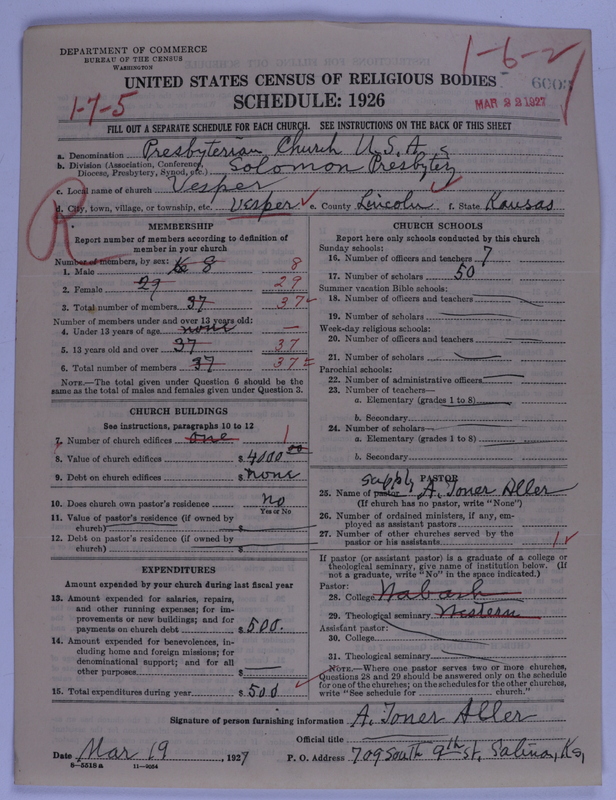 DEPARTMENT OF COMMERCE
BUREAU OF THE CENSUS
WASHINGTON
1-6-2
UNITED STATES CENSUS OF RELIGIOUS BODIES
1-7-5
SCHEDULE: 1926
MAR 22 1927
FILL OUT A SEPARATE SCHEDULE FOR EACH CHURCH. SEE INSTRUCTIONS ON THE BACK OF THIS SHEET
a. Denomination Presbyterian Church U.S.A.
b. Division (Association, Conference, Diocese, Presbytery, Synod, etc.) Solomon Presbytery
c. Local name of church Vesper
d. City, town, village, or township, etc. Vesper e. County Lincoln f. State Kansas
R
MEMBERSHIP
Report number of members according to definition of member in your church
Number of members, by sex:
1. Male 8 8
2. Female 29 29
3. Total number of members 37 37
Number of members under and over 13 years old:
4. Under 13 years of age none —
5. 13 years old and over 37 37
6. Total number of members 37 37
NOTE.—The total given under Question 6 should be the same as the total of males and females given under Question 3.
CHURCH BUILDINGS
See instructions, paragraphs 10 to 12
7. Number of church edifices one 1
8. Value of church edifices $ 4000 00
9. Debt on church edifices $ none
10. Does church own pastor's residence no
Yes or No
11. Value of pastor's residence (if owned by church) $
12. Debt on pastor's residence (if owned by church) $
EXPENDITURES
Amount expended by your church during last fiscal year
13. Amount expended for salaries, repairs, and other running expenses; for improvements or new buildings; and for payments on church debt $ 500.
14. Amount expended for benevolences, including home and foreign missions; for denominational support; and for all other purposes $ —
15. Total expenditures during year $ 500
CHURCH SCHOOLS
Report here only schools conducted by this church
Sunday schools:
16. Number of officers and teachers 7
17. Number of scholars 50
Summer vacation Bible schools:
18. Number of officers and teachers
19. Number of scholars
Week-day religious schools:
20. Number of officers and teachers
21. Number of scholars
Parochial schools:
22. Number of administrative officers
23. Number of teachers—
a. Elementary (grades 1 to 8)
b. Secondary
24. Number of scholars—
a. Elementary (grades 1 to 8)
b. Secondary
supply PASTOR
25. Name of pastor A. Toner Aller
(If church has no pastor, write "None")
26. Number of ordained ministers, if any, employed as assistant pastors
27. Number of other churches served by the pastor or his assistants 1
If pastor (or assistant pastor) is a graduate of a college or theological seminary, give name of institution below. (If not a graduate, write "No" in the space indicated.)
Pastor:
28. College Wabash
29. Theological seminary Western
Assistant pastor:
30. College
31. Theological seminary
NOTE.—Where one pastor serves two or more churches, Questions 28 and 29 should be answered only on the schedule for one of the churches; on the schedules for the other churches, write "See schedule for church."
Signature of person furnishing information A. Toner Aller
Official title
Date Mar 19, 1927 P. O. Address 709 South 9th St, Salina, Ks,
8—5518 a 11—9054